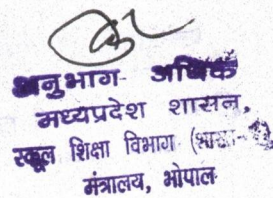 अनुभाग अधिक
मध्यप्रदेश शासन,
स्कूल शिक्षा विभाग
मंत्रालय, भोपाल